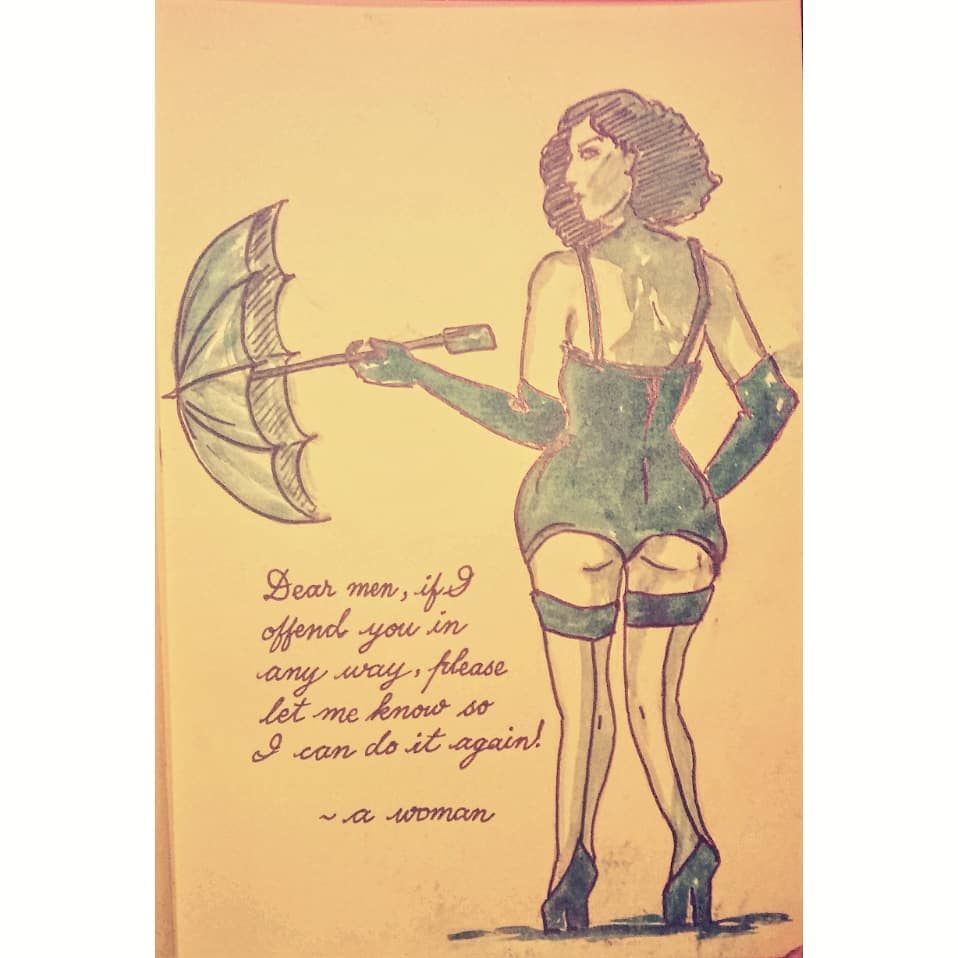 Dear men, if I
offend you in
any way, please
let me know so
I can do it again!
~ a woman